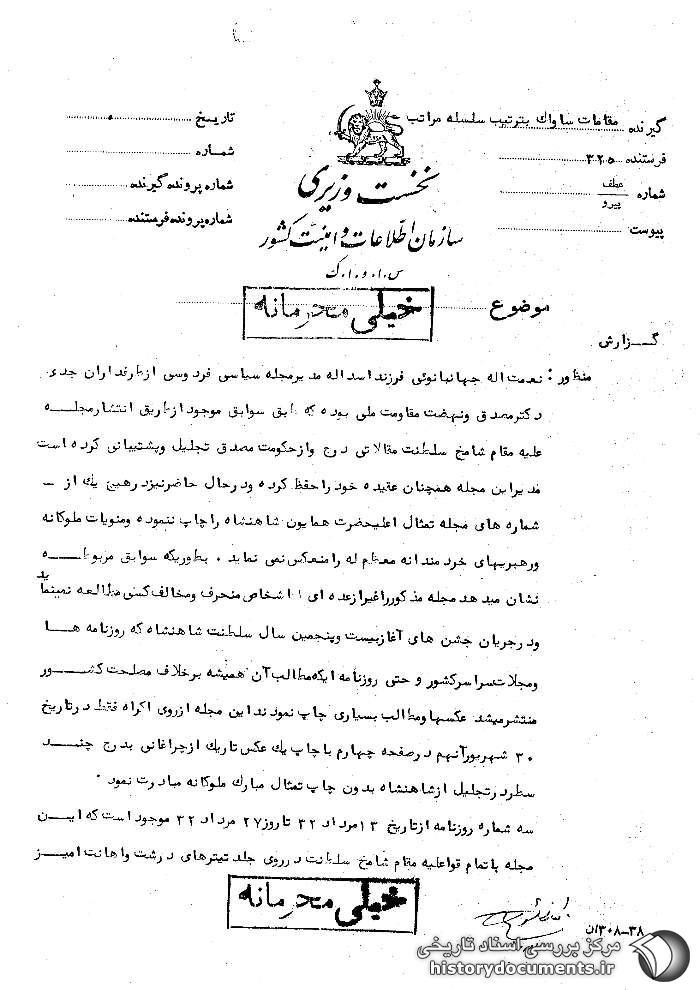 گیرنده مقامات ساواك بترتیب سلسله مراتب
فرستنده ۳۲۵
شماره عطف
پیرو
پیوست
تاریخ
شماره
شماره پرونده گیرنده
شماره پرونده فرستنده
نخست وزیری
سازمان اطلاعات و امنیت کشور
س.ا.و.ا.ک
موضوع
خیلی محرمانه
گزارش
منظور : نعمت اله جهانبانوئی فرزند اسد اله مدیر مجله سیاسی فردوسی از طرفداران جدی
دکتر مصدق ونهضت مقاومت ملی بوده که طبق سوابق موجود از طریق انتشار مجله
علیه مقام شامخ سلطنت مقالاتی درج واز حکومت مصدق تجلیل وپشتیبانی کرده است
مدیر این مجله همچنان عقیده خود را حفظ کرده ودر حال حاضر نیز در هیچ یك از -
شماره های مجله تمثال اعلیحضرت همایون شاهنشاه را چاپ ننموده ومنویات ملوکانه
ورهبریهای خردمندانه معظم له را منعکس نمی نماید . بطوریکه سوابق مربوطه
نشان میدهد مجله مذکور را غیر از عده ای اشخاص منحرف ومخالف کسی مطالعه نمینماید
ودر جریان جشن های آغاز بیست وپنجمین سال سلطنت شاهنشاه که روزنامه ها
ومجلات سراسر کشور و حتی روزنامه ایکه مطالب آن همیشه برخلاف مصلحت کشور
منتشر میشد عکسها ومطالب بسیاری چاپ نمودند این مجله از روی اکراه فقط در تاریخ
۳۰ شهریور آنهم در صفحه چهارم با چاپ یك عکس تاریك از چراغانی بدرج چند
سطر در تجلیل از شاهنشاه بدون چاپ تمثال مبارك ملوکانه مبادرت نمود .
سه شماره روزنامه از تاریخ ۱۳ مرداد ۳۲ تا روز ۲۷ مرداد ۳۲ موجود است که این
مجله با تمام قوا علیه مقام شامخ سلطنت در روی جلد تیترهای درشت واهانت آمیز
خیلی محرمانه
۳۸-۳۰۸/ان
مرکز بررسی اسناد تاریخی
historydocuments.ir